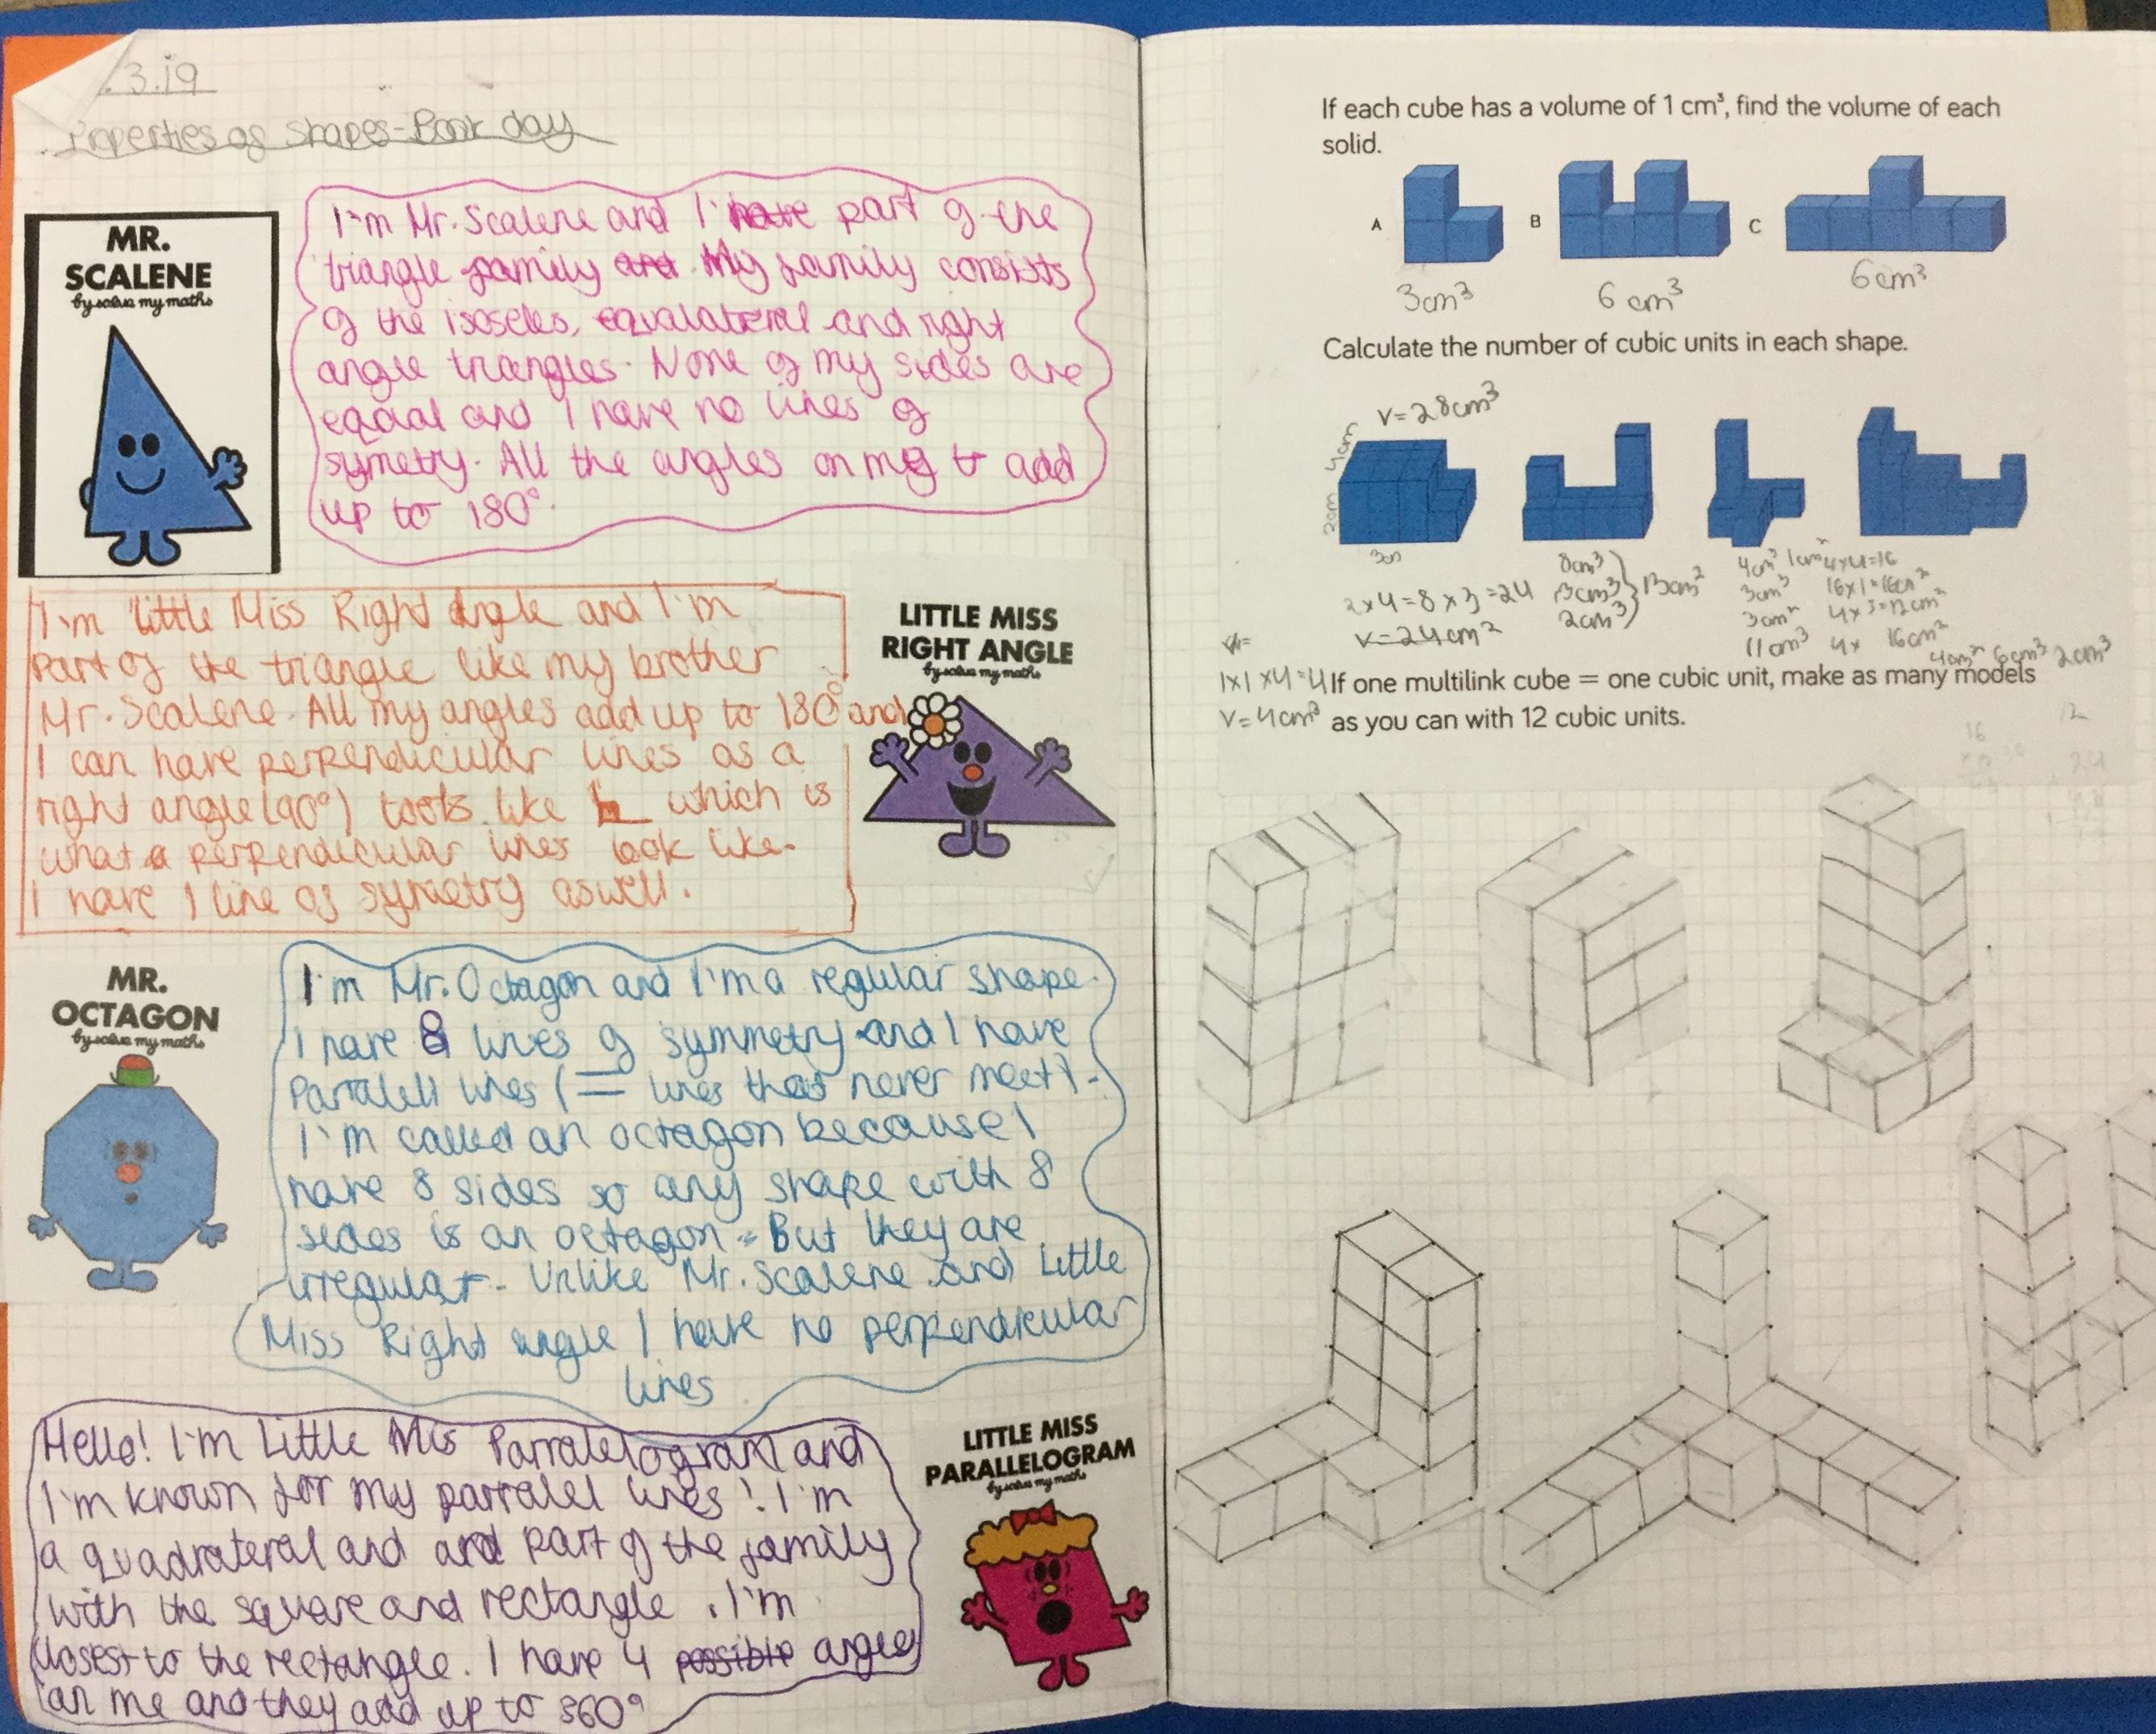 .3.19
Properties of Shapes - Book day
MR.
SCALENE
by solve my maths
I'm Mr. Scalene and I'have part of the
triangle family and My family consists
of the isoseles, equalateral and right
angle triangles. None of my sides are
equal and I have no lines of
symetry. All the angles on my tr add
up to 180°.
I'm little Miss Right Angle and I'm
part of the triangle like my brother
Mr. Scalene. All my angles add up to 180° and
I can have perpendicular lines as a
right angle (90°) looks like which is
what a perpendicular lines look like.
I have 1 line of symetry aswell.
LITTLE MISS
RIGHT ANGLE
by solve my maths
MR.
OCTAGON
by solve my maths
I'm Mr. Octagon and I'm a regular shape.
I have 8 lines of symmetry and I have
Parralell lines (= lines that never meet).
I'm called an octagon because I
have 8 sides so any shape with 8
sides is an octagon. But they are
irregular. Unlike Mr. Scalene and Little
Miss Right angle I have no perpendicular
lines
Hello! I'm Little Mis Parralelogram and
I'm known for my parralel lines! I'm
a quadrateral and and part of the family
with the square and rectangle. I'm
closest to the rectangle. I have 4 possible angles
on me and they add up to 360°
LITTLE MISS
PARALLELOGRAM
by solve my maths
If each cube has a volume of 1 cm³, find the volume of each
solid.
A
B
C
3cm³
6 cm³
6cm³
Calculate the number of cubic units in each shape.
V=28cm³
4cm
2cm
3cm
2x4=8x3=24
V=24cm²
8cm³
3cm³
2cm³
13cm²
4cm³
3cm³
3cm²
11cm³
1cm²
4x4=16
16x1=16cm²
4x3=12cm²
4x 16cm²
4cm² 6cm³ 2cm³
1x1x4=4
V=4cm³
If one multilink cube = one cubic unit, make as many models
as you can with 12 cubic units.